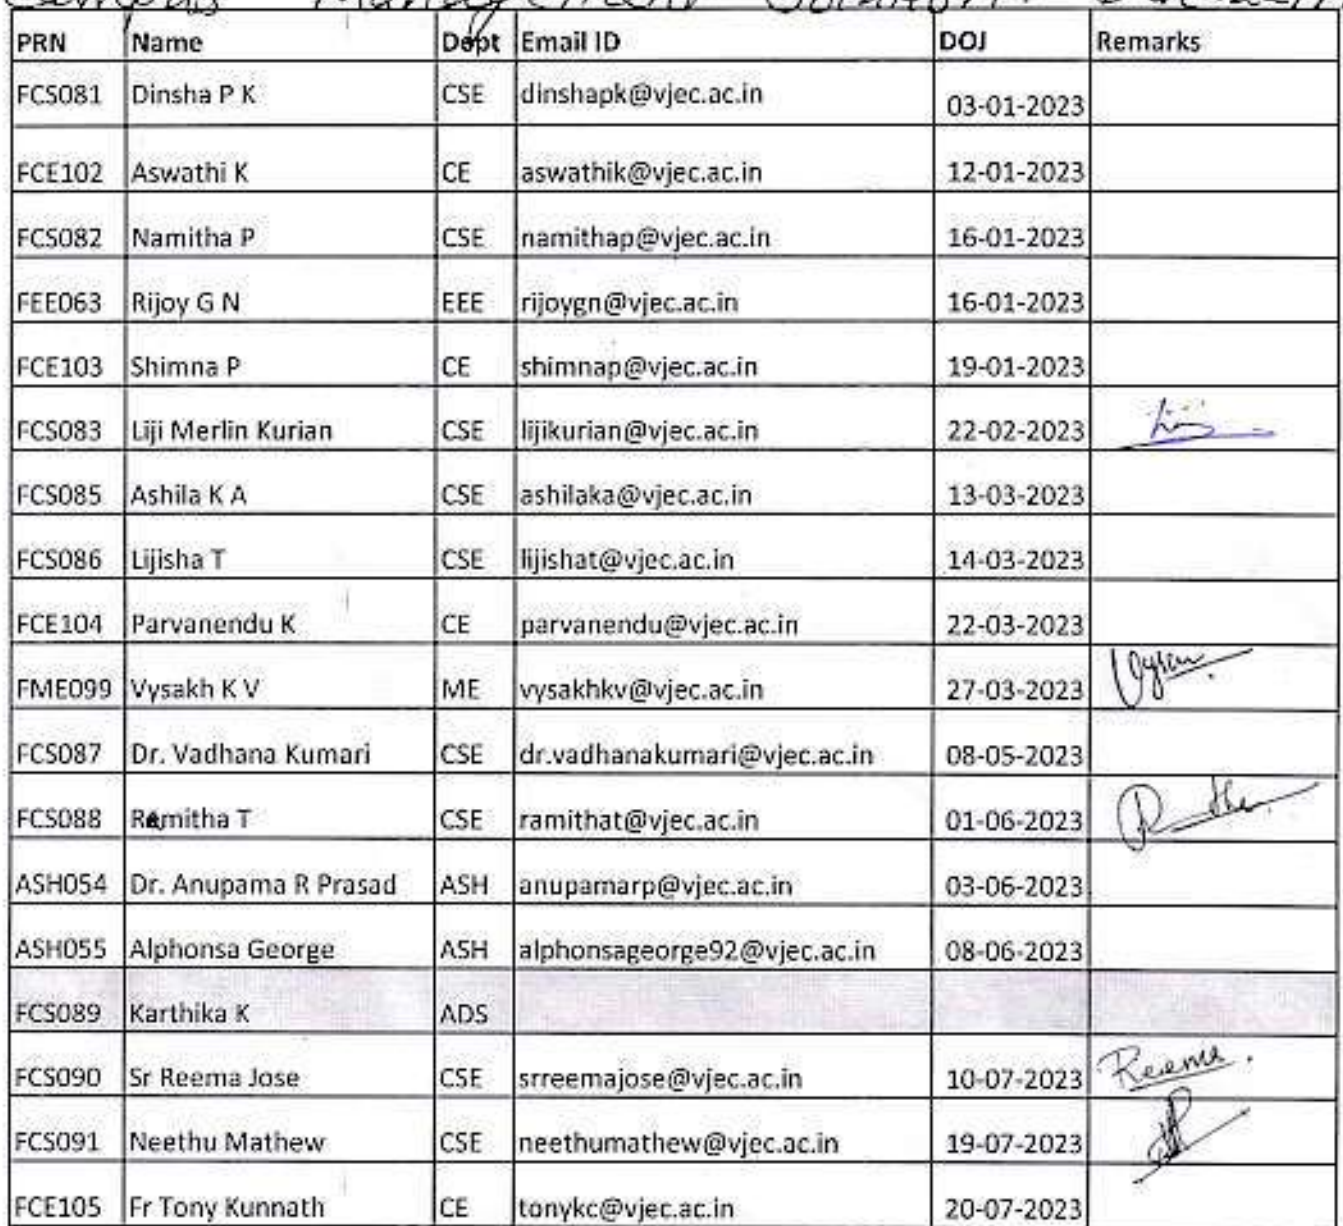 Campus Management Solution
PRN Name Dept Email ID DOJ Remarks
FCS081 Dinsha P K CSE dinshapk@vjec.ac.in 03-01-2023
FCE102 Aswathi K CE aswathik@vjec.ac.in 12-01-2023
FCS082 Namitha P CSE namithap@vjec.ac.in 16-01-2023
FEE063 Rijoy G N EEE rijoygn@vjec.ac.in 16-01-2023
FCE103 Shimna P CE shimnap@vjec.ac.in 19-01-2023
FCS083 Liji Merlin Kurian CSE lijikurian@vjec.ac.in 22-02-2023
FCS085 Ashila K A CSE ashilaka@vjec.ac.in 13-03-2023
FCS086 Lijisha T CSE lijishat@vjec.ac.in 14-03-2023
FCE104 Parvanendu K CE parvanendu@vjec.ac.in 22-03-2023
FME099 Vysakh K V ME vysakhkv@vjec.ac.in 27-03-2023
FCS087 Dr. Vadhana Kumari CSE dr.vadhanakumari@vjec.ac.in 08-05-2023
FCS088 Ramitha T CSE ramithat@vjec.ac.in 01-06-2023
ASH054 Dr. Anupama R Prasad ASH anupamarp@vjec.ac.in 03-06-2023
ASH055 Alphonsa George ASH alphonsageorge92@vjec.ac.in 08-06-2023
FCS089 Karthika K ADS
FCS090 Sr Reema Jose CSE srreemajose@vjec.ac.in 10-07-2023 Reema.
FCS091 Neethu Mathew CSE neethumathew@vjec.ac.in 19-07-2023
FCE105 Fr Tony Kunnath CE tonykc@vjec.ac.in 20-07-2023